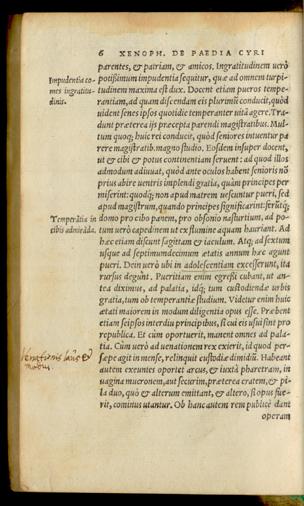 6 XENOPH. DE PAEDIA CYRI
parentes, & patriam, & amicos. Ingratitudinem uerò
Impudentia co-
mes ingratitu-
dinis.
potissimum impudentia sequitur, quæ ad omnem turpi-
tudinem maxima est dux. Docent etiam pueros tempe-
rantiam, ad quam discendam eis plurimũ conducit, quòd
uident senes ipsos quotidie temperanter uitã agere. Tra-
dunt præterea ijs præcepta parendi magistratibus. Mul-
tum quoq; huic rei conducit, quòd seniores intuentur pa
rere magistratib. magno studio. Eosdem insuper docent,
ut & cibi & potus continentiam seruent: ad quod illos
admodum adiuuat, quòd ante oculos habent seniores nõ
prius abire uentris implendi gratia, quàm principes per
miserint: quodq; non apud matrem uescuntur pueri, sed
apud magistrum, quando principes significarint: ferũtq;
Temperãtia in
cibis admirãda.
domo pro cibo panem, pro obsonio nasturtium, ad po-
tum uerò capedinem ut ex flumine aquam hauriant. Ad
hæc etiam discunt sagittam & iaculum. Atq; ad sextum
usque ad septimumdecimum ætatis annum hæc agunt
pueri. Dein uerò ubi in adolescentiam excesserunt, ita
rursus degunt. Pueritiam enim egressi cubant, ut an-
tea diximus, ad palatia, idq; tum custodiendæ urbis
gratia, tum ob temperantiæ studium. Videtur enim huic
ætati maiorem in modum diligentia opus esse. Præbent
etiam seipsos interdiu principibus, si cui eis usui sint pro
republica. Et cùm oportuerit, manent omnes ad pala-
tia. Cùm uerò ad uenationem rex exierit, id quod per-
sæpe agit in mense, relinquit custodiæ dimidiũ. Habeant
autem exeuntes oportet arcus, & iuxtà pharetram, in
uagina mucronem, aut securim, præterea cratem, & pi-
la duo, quò & alterum emittant, & altero, si opus fue-
rit, cominus utantur. Ob hanc autem rem publicè dant
operam